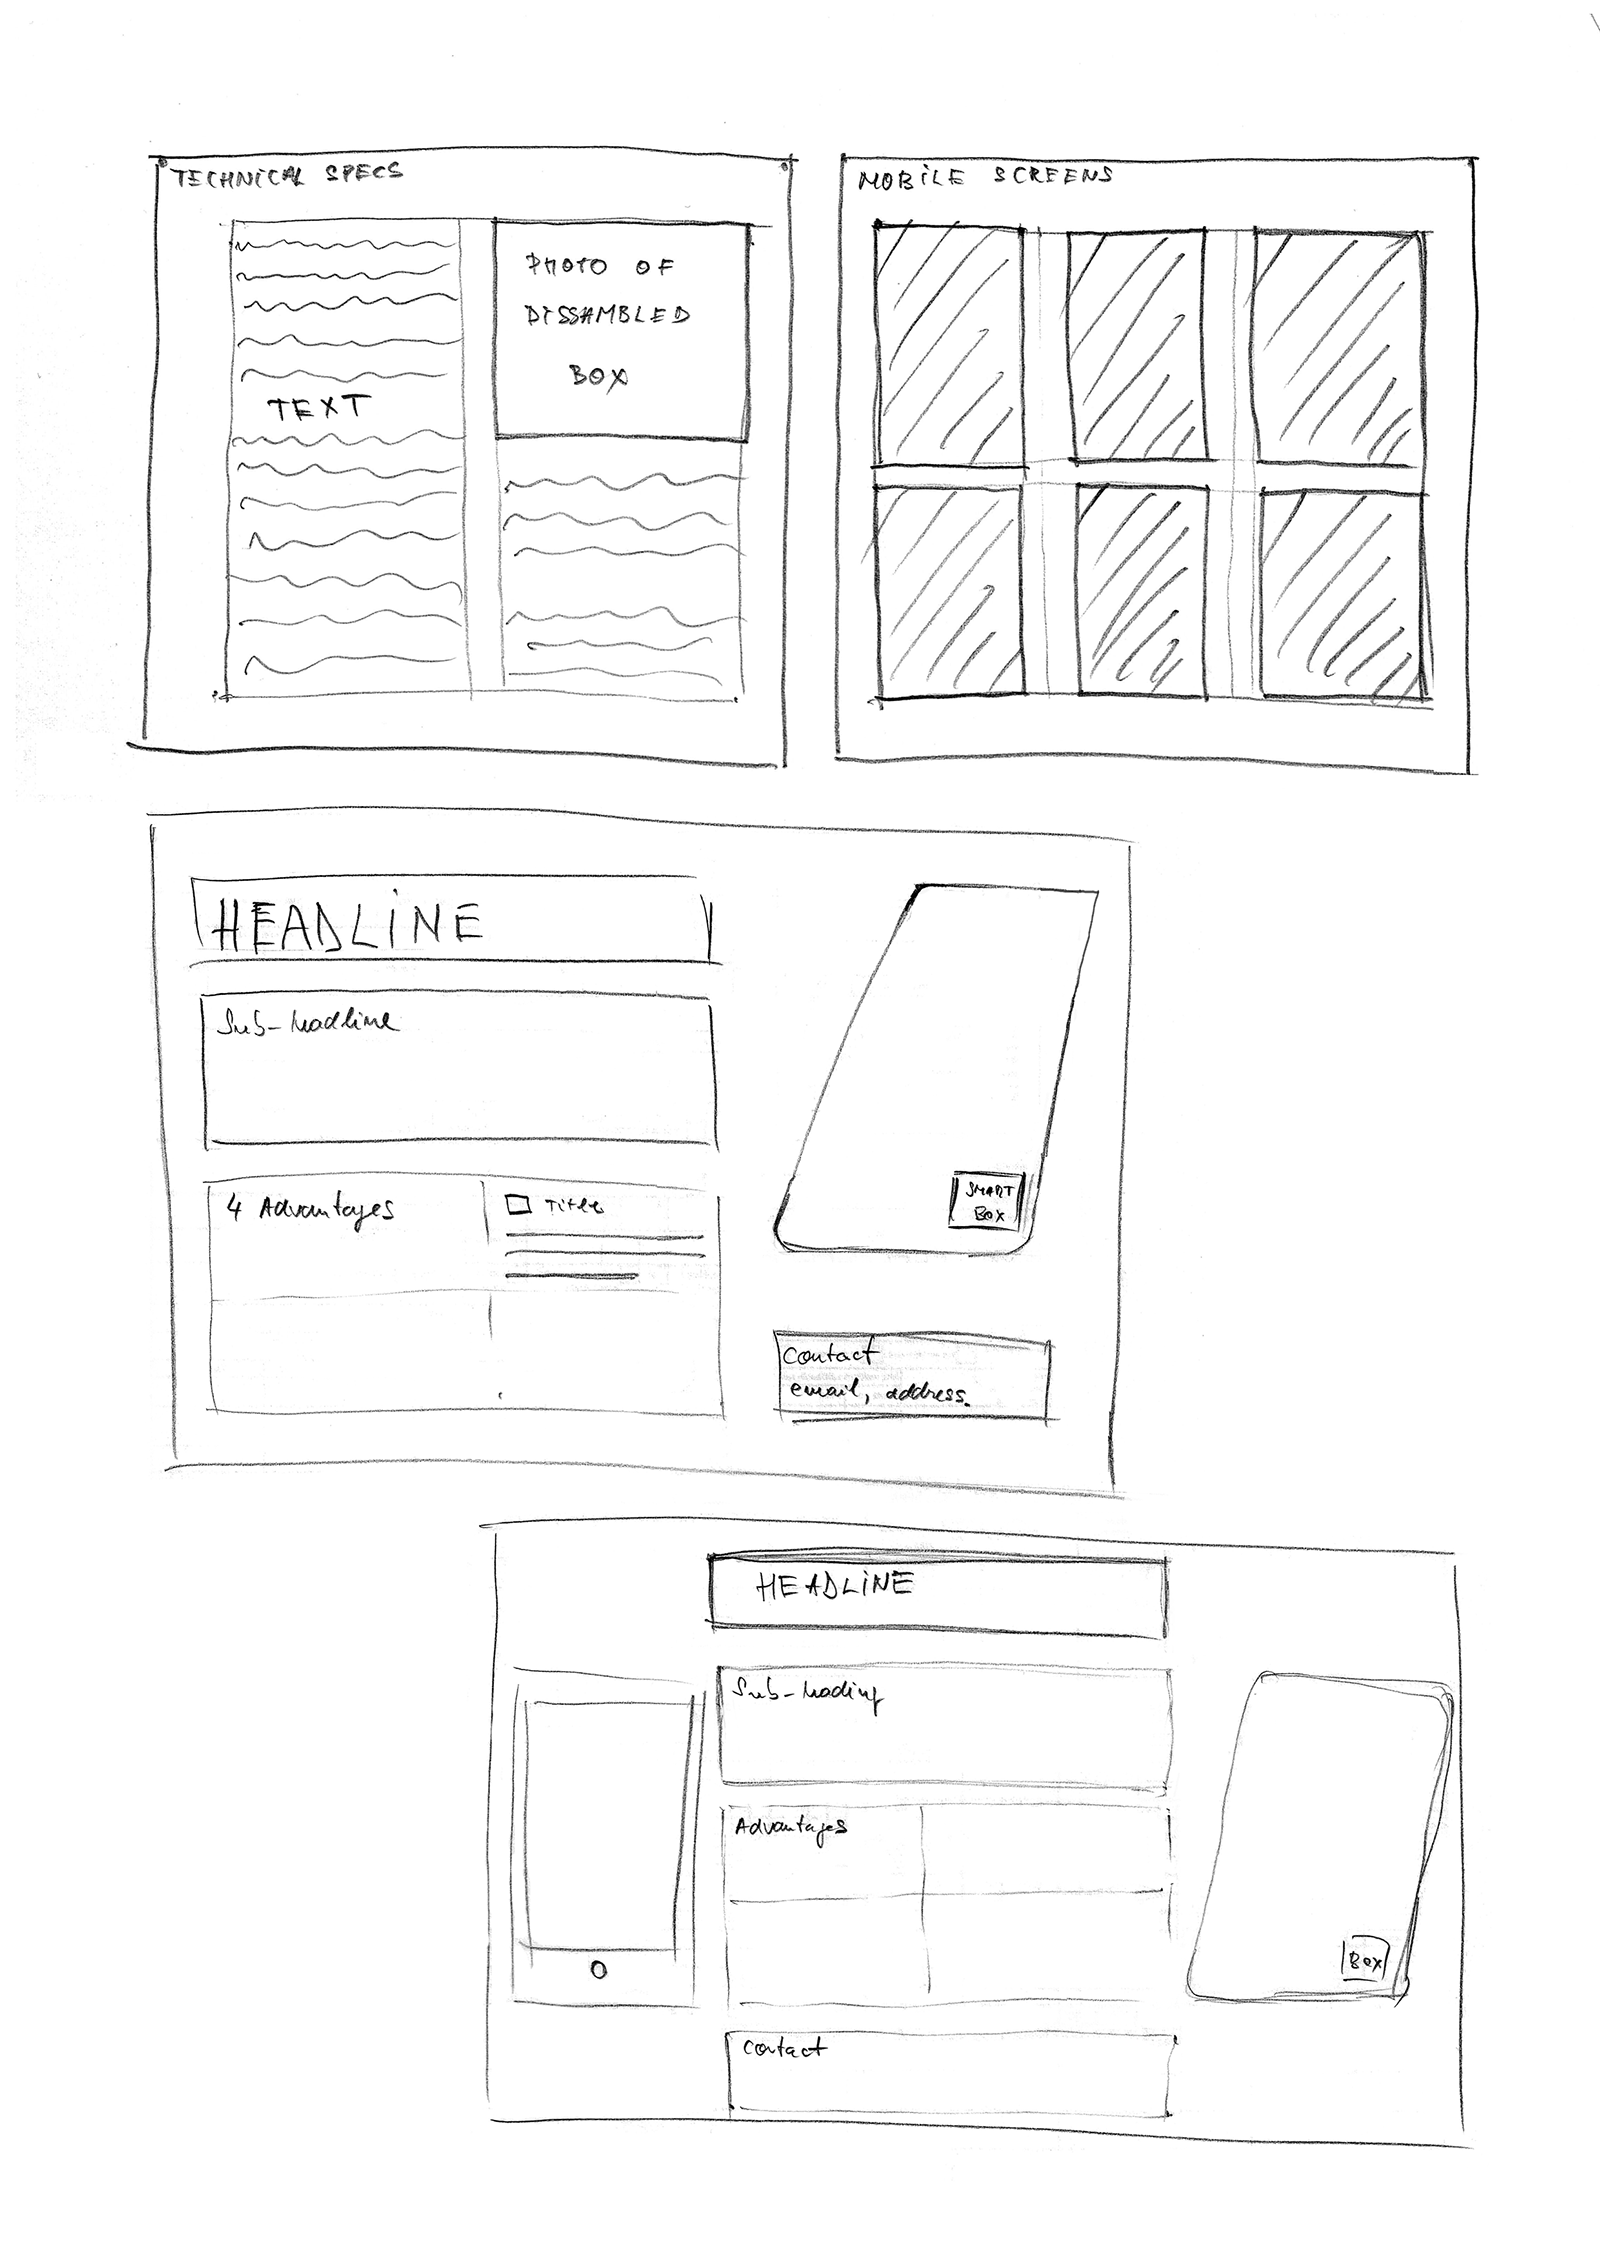 TECHNICAL SPECS
TEXT
PHOTO OF
DISSAMBLED
BOX
MOBILE SCREENS
HEADLINE
Sub-headline
4 Advantages
Title
SMART
BOX
Contact
email, address.
HEADLINE
Sub-heading
Advantages
BOX
Contact